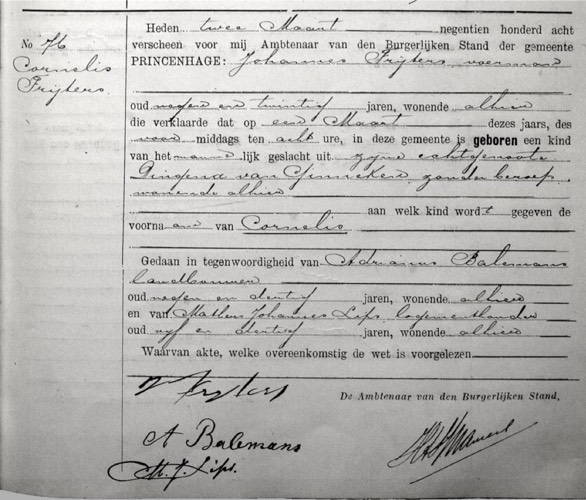 No 76
Cornelis
Frijters
Heden twee Maart negentien honderd acht
verscheen voor mij Ambtenaar van den Burgerlijken Stand der gemeente
PRINCENHAGE: Johannes Frijters, voerman
oud negen en twintig jaren, wonende alhier
die verklaarde dat op een Maart dezes jaars, des
voor middags ten acht ure, in deze gemeente is geboren een kind
van het mannelijk geslacht uit zijne echtgenoote
Dingena van Ginneken, zonder beroep,
wonende alhier
aan welk kind wordt gegeven de
voornaam van Cornelis
Gedaan in tegenwoordigheid van Adrianus Balemans
landbouwer
oud negen en dertig jaren, wonende alhier
en van Matheus Johannes Lips, logementhouder
oud vijf en dertig jaren, wonende alhier
Waarvan akte, welke overeenkomstig de wet is voorgelezen
Frijters
De Ambtenaar van den Burgerlijken Stand,
A Balemans
M. J. Lips.